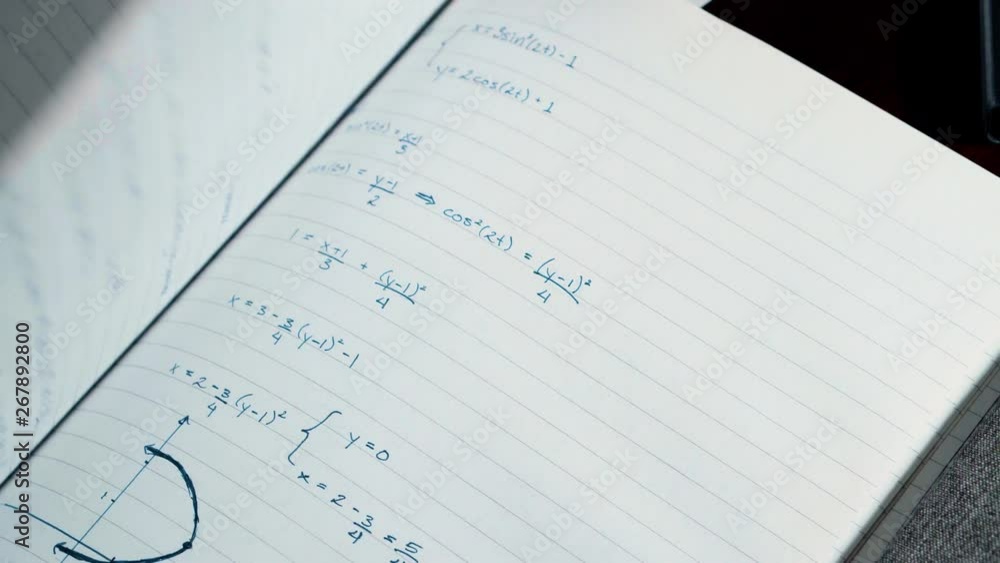 x = 3sin²(2t) - 1
y = 2cos(2t) + 1
sin²(2t) = x+1/3
cos(2t) = y-1/2 ⇒ cos²(2t) = (y-1)²/4
1 = x+1/3 + (y-1)²/4
x = 3 - 3/4 (y-1)² - 1
x = 2 - 3/4 (y-1)² { y = 0
x = 2 - 3/4 = 5/
1
Adobe Stock | #267892800